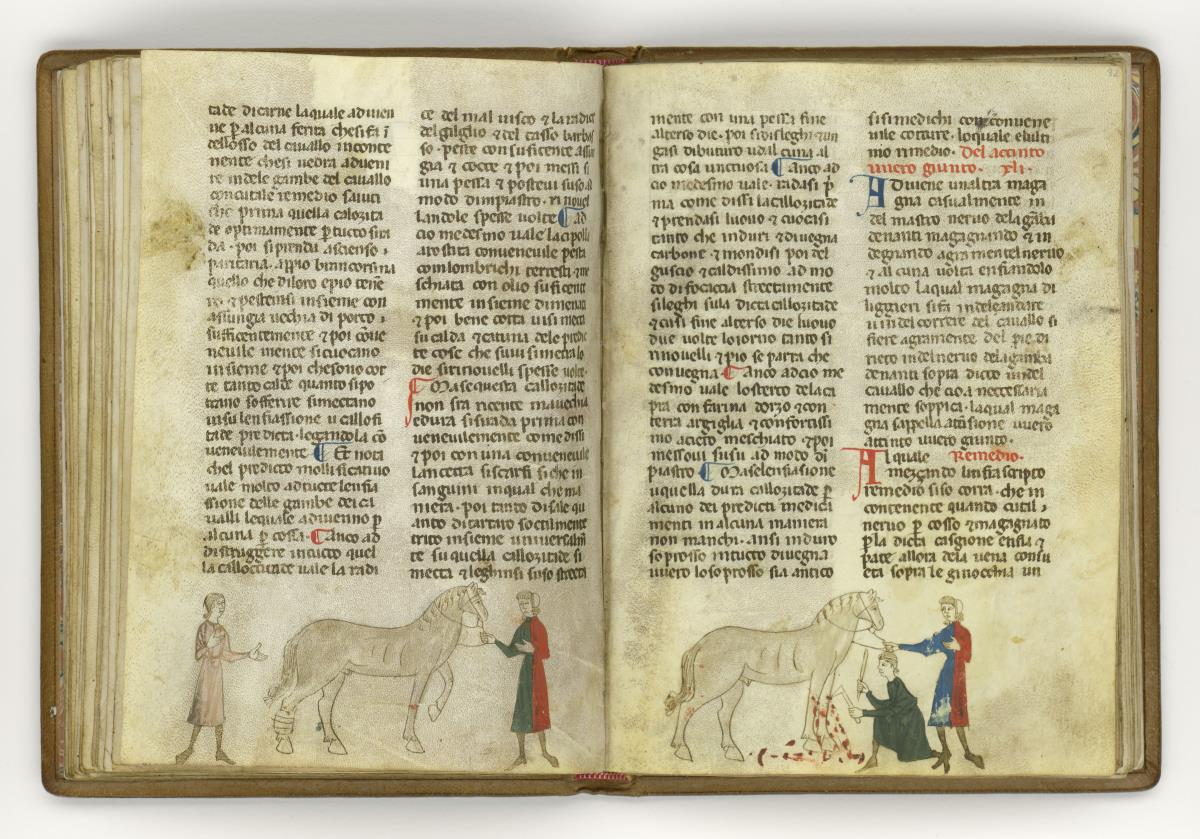 tade di carne laquale adiuien
ne p̄ alcuna ferita che si fa ī
dell osso del cauallo inconte
nente chesi uedra adueni
re in dele gambe del cauallo
con cutale remedio
che prima quella callozita
de optimamente p̄ tucto si ra
da · poi si prenda ascienso ·
paritaria · appio brancorsina
quello che di loro epio tene
ro · ⁊ pestensi insieme con
assungia uechia di porco ·
sufficentemente ⁊ poi cōue
neuile mente si cuocano
insieme ⁊ poi che sono cor
te tanto calde quanto si po
trano sofferire si mectano
insu lensiassione u callosi
tade predicta · legandola cō
ueneuilemente ¶ Et nota
chel predicto mollificatiuo
uale molto ad tucte lensia
ssione delle gambe dei ca
ualli le quale aduienno p̄
alcuna p̄cossa · ¶ Anco ad
distruggere intucto quel
la calloccitade uale la radi
ce del mal uisco ⁊ la radice
del gilglio ⁊ del tasso barbas
so · peste con suficente assun
gia ⁊ cocte ⁊ poi messi i
una pessa ⁊ posteui suso al
modo dimpiastro · rinouel
landole spesse uolte ¶ ad
cio medesmo uale la cipolla
arostita conueneuile pesta
con lombrichi terresti ⁊ me
schiata con olio suficente
mente insieme dimenata
⁊ poi bene cotta uisi mecta
su calda ⁊ catuna dele predic
te cose che suui si mecta lo
die si rinouelli spesse uolte ·
¶ Ma se questa callozitade
non sia ricente ma uechia
e dura si si rada prima con
ueneuilemente come dissi
⁊ poi con una conueneuile
lancetta si scarfi si che in
sanguini inqual che ma
niera · poi tanto di sale qu
anto di tartaro soctilmente
trito insieme uniuersalm̄
te su quella callozitade si
mecta ⁊ leghinsi suso strecta
mente con una pessa fine
alterso die · poi si disleghi ⁊ un
gasi di buturo u dal cuna al
tra cosa unctuosa ¶ Anco ad
cio medesmo uale · radasi p̄
ma come dissi la callozitade
⁊ prendasi luouo ⁊ cuocasi
tanto che induri ⁊ diuegna
carbone · ⁊ mondisi poi del
guscio ⁊ caldissimo ad mo
do di focaccia strectamente
si leghi su la dicta callozitade
⁊ cusi fine alterso die luouo
due uolte lo iorno tanto si
rinouelli ⁊ pio se parra che
conuegna · ¶ Anco ad cio me
desmo uale losterco dela ca
pra con farina dorzo ⁊ con
terra argiglia ⁊ con fortissi
mo acieto meschiato ⁊ poi
messoui susu ad modo di
piastro · ¶ Ma se lensiasione
u quella dura callozitade p̄
alcuno dei predicti medica
menti in alcuna maniera
non manchi · ansi induro
sopresso intucto diuegna
uuero lo soprosso sia antico
si si medichi con conuene
uile cotture · lo quale e lulti
mo rimedio · Del actinto
uuero giunto · xli ·
Adiuiene unaltra maga
gna casualmente in
del mastro neruo dela gāba
denanti magagnando ⁊ in
degnando agramente l neruo
⁊ alcuna uolta enfiandolo
molto laqual magagna di
liggieri si fa indel andare
u indel correre del cauallo si
fiere agramente del pie di
rieto indel neruo dela gamba
denanti sopra dicto unde l
cauallo che cio a necessaria
mente soppica · laqual maga
gna sapella actisione uuero
actinto uuero giunto ·
Al quale Remedio ·
mezzando linfrascripto
remedio siso corra · che in
contenente quanto cutil ·
neruo p̄cosso ⁊ magagnato
p̄ la dicta casgione enfia ⁊
pate allora dela uena consu
eta sopra le ginocchia un